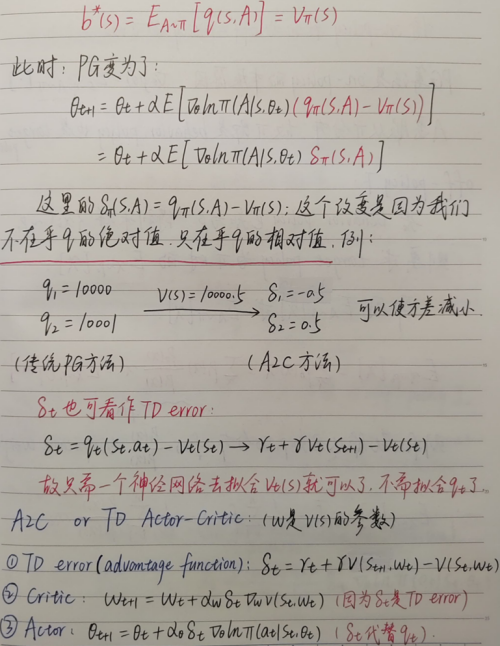 b*(s) = E_{A~π}[q(s,A)] = V_π(s)
此时：PG变为了：
θ_{t+1} = θ_t + αE[∇_θ lnπ(A|S,θ_t) (q_π(S,A) - V_π(S))]
= θ_t + αE[∇_θ lnπ(A|S,θ_t) δ_π(S,A)]
这里的δ_π(S,A) = q_π(S,A) - V_π(S)；这个改变是因为我们
不在乎q的绝对值，只在乎q的相对值，例：
q_1 = 10000 V(s) = 10000.5 → δ_1 = -0.5 可以使方差减小.
q_2 = 10001 δ_2 = 0.5
(传统PG方法) (A2C方法)
δ_t也可看作TD error:
δ_t = q_t(s_t,a_t) - V_t(s_t) → r_t + γV_t(s_{t+1}) - V_t(s_t)
故只需一个神经网络去拟合V_t(s)就可以了，不需拟合q_t了.
A2C or TD Actor-Critic: (w是V(s)的参数)
① TD error(advantage function): δ_t = r_t + γV(s_{t+1},w_t) - V(s_t,w_t)
② Critic: w_{t+1} = w_t + α_w δ_t ∇_w v(s_t,w_t) (因为δ_t是TD error)
③ Actor: θ_{t+1} = θ_t + α_θ δ_t ∇_θ lnπ(a_t|s_t,θ_t) (δ_t代替q_t).